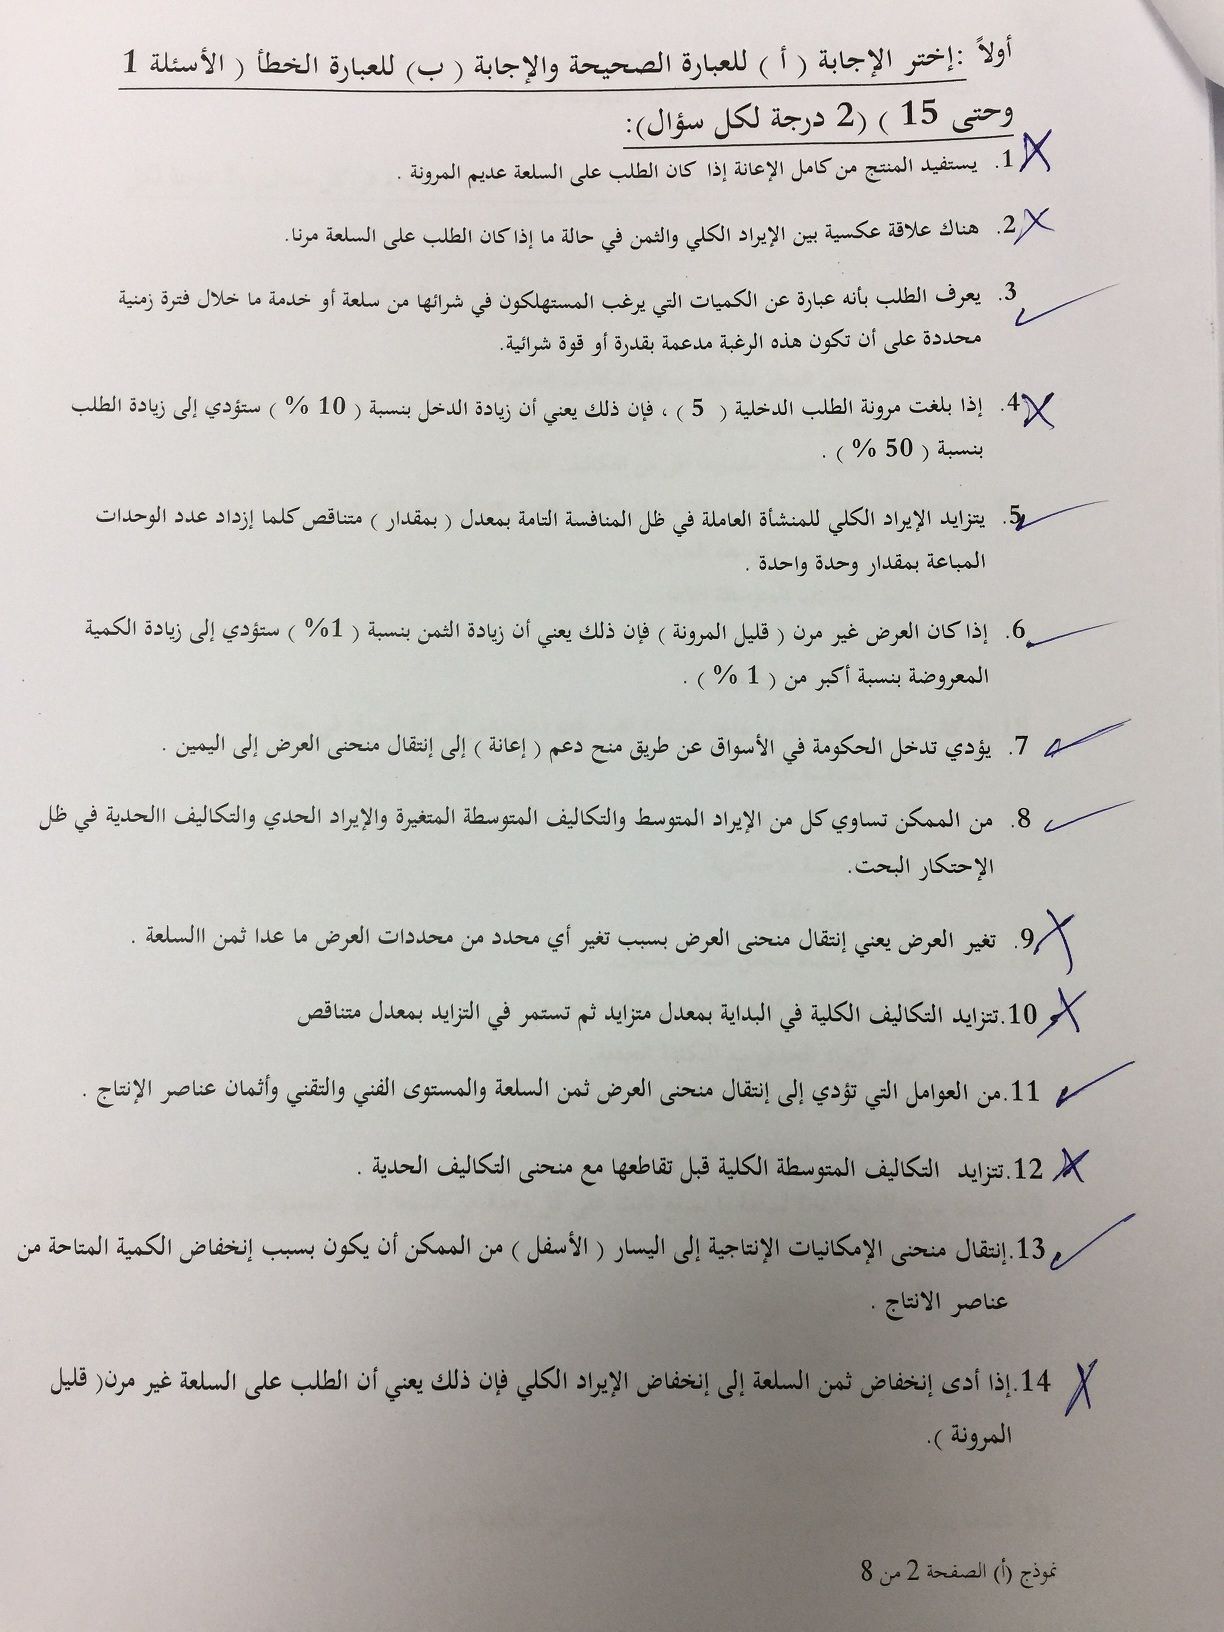 أولاً :إختر الإجابة ( أ ) للعبارة الصحيحة والإجابة ( ب) للعبارة الخطأ ( الأسئلة 1
وحتى 15 ) (2 درجة لكل سؤال):
1. يستفيد المنتج من كامل الإعانة إذا كان الطلب على السلعة عديم المرونة .
2. هناك علاقة عكسية بين الإيراد الكلي والثمن في حالة ما إذا كان الطلب على السلعة مرنا.
3. يعرف الطلب بأنه عبارة عن الكميات التي يرغب المستهلكون في شرائها من سلعة أو خدمة ما خلال فترة زمنية
محددة على أن تكون هذه الرغبة مدعمة بقدرة أو قوة شرائية.
4. إذا بلغت مرونة الطلب الدخلية ( 5 ) ، فإن ذلك يعني أن زيادة الدخل بنسبة ( 10 % ) ستؤدي إلى زيادة الطلب
بنسبة ( 50 % ) .
5. يتزايد الإيراد الكلي للمنشأة العاملة في ظل المنافسة التامة بمعدل ( بمقدار ) متناقص كلما إزداد عدد الوحدات
المباعة بمقدار وحدة واحدة .
6. إذا كان العرض غير مرن ( قليل المرونة ) فإن ذلك يعني أن زيادة الثمن بنسبة ( 1% ) ستؤدي إلى زيادة الكمية
المعروضة بنسبة أكبر من ( 1 % ) .
7. يؤدي تدخل الحكومة في الأسواق عن طريق منح دعم ( إعانة ) إلى إنتقال منحنى العرض إلى اليمين .
8. من الممكن تساوي كل من الإيراد المتوسط والتكاليف المتوسطة المتغيرة والإيراد الحدي والتكاليف االحدية في ظل
الإحتكار البحت.
9. تغير العرض يعني إنتقال منحنى العرض بسبب تغير أي محدد من محددات العرض ما عدا ثمن االسلعة .
10.تتزايد التكاليف الكلية في البداية بمعدل متزايد ثم تستمر في التزايد بمعدل متناقص
11.من العوامل التي تؤدي إلى إنتقال منحنى العرض ثمن السلعة والمستوى الفني والتقني وأثمان عناصر الإنتاج .
12.تتزايد التكاليف المتوسطة الكلية قبل تقاطعها مع منحنى التكاليف الحدية .
13.إنتقال منحنى الإمكانيات الإنتاجية إلى اليسار ( الأسفل ) من الممكن أن يكون بسبب إنخفاض الكمية المتاحة من
عناصر الانتاج .
14.إذا أدى إنخفاض ثمن السلعة إلى إنخفاض الإيراد الكلي فإن ذلك يعني أن الطلب على السلعة غير مرن( قليل
المرونة ).
نموذج (أ) الصفحة 2 من 8